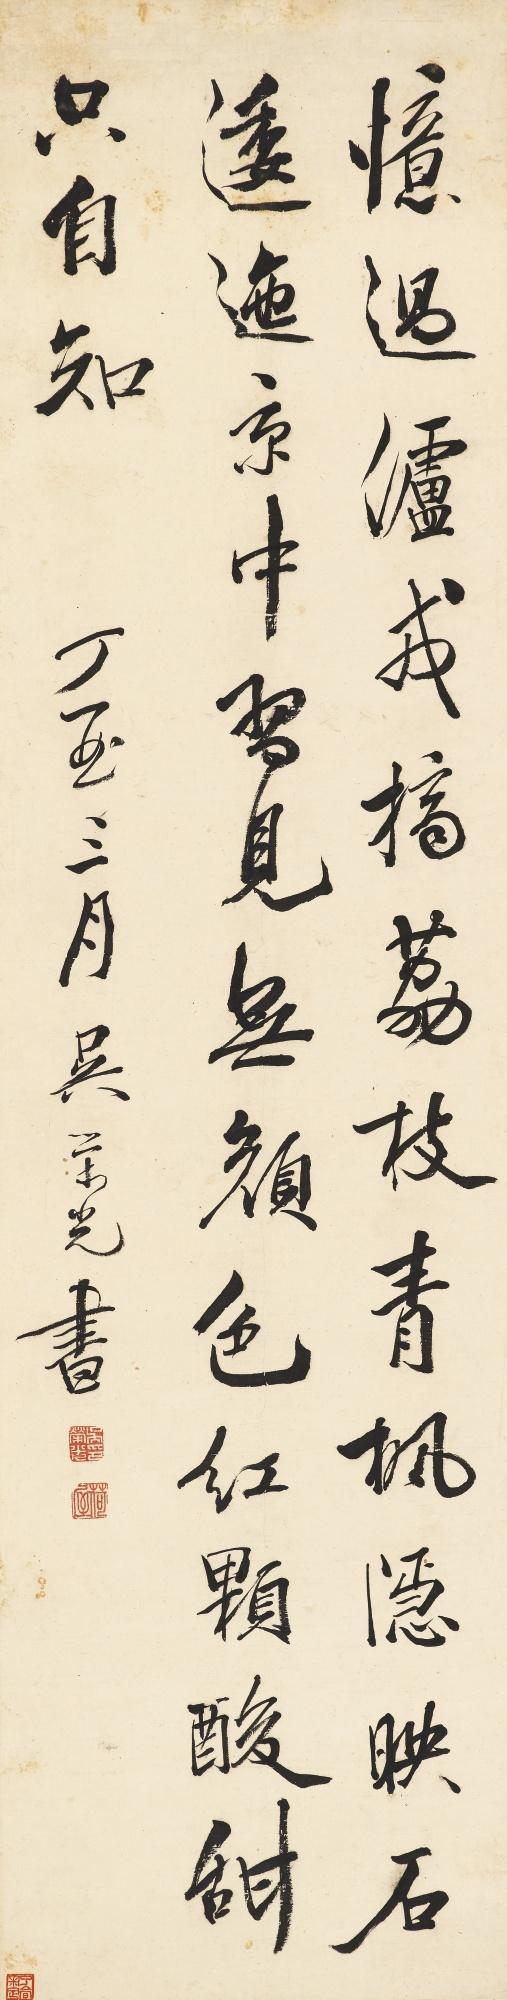 憶過瀘戎摘荔枝青楓隱映石
逶迤京中習見無顏色紅顆酸甜
只自知
丁酉三月吳榮光書
吳榮光印
荷屋